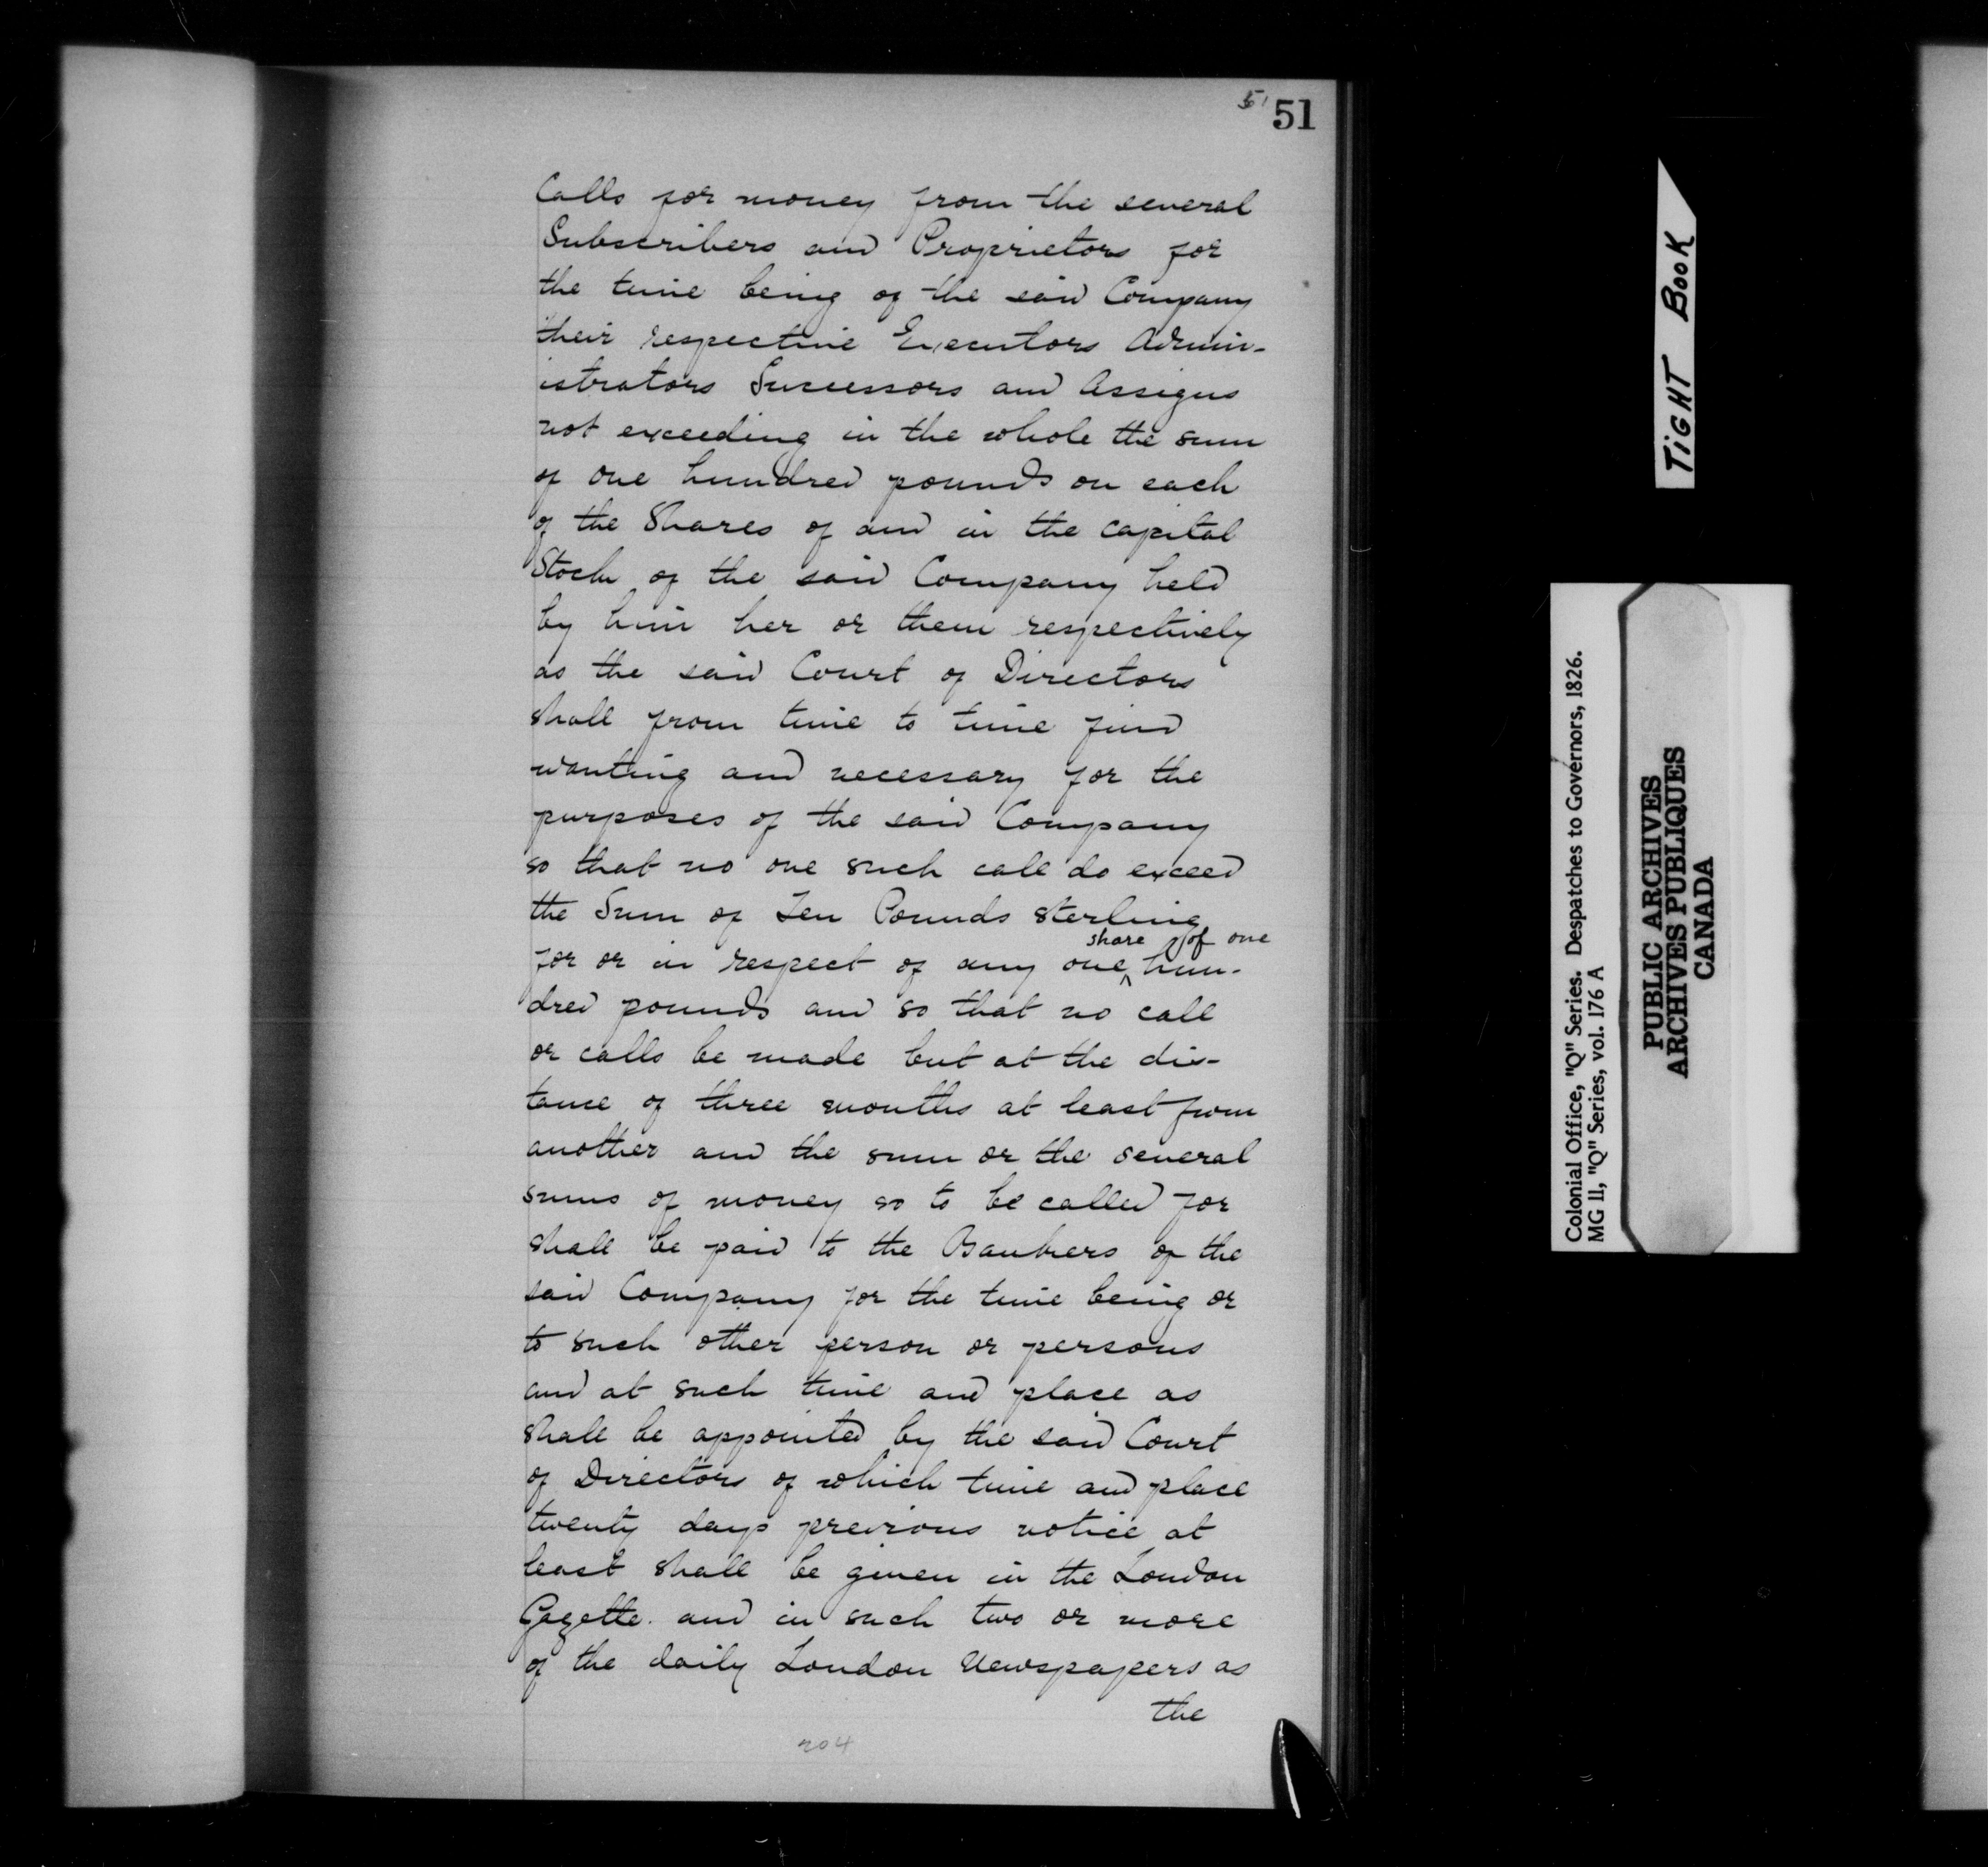 51 51
Calls for money from the several
Subscribers and Proprietors for
the time being of the said Company
their respective Executors Admin-
istrators Successors and Assigns
not exceeding in the whole the sum
of one hundred pounds on each
of the Shares of and in the capital
Stock of the said Company held
by him her or them respectively
as the said Court of Directors
shall from time to time find
wanting and necessary for the
purposes of the said Company
so that no one such call do exceed
the Sum of Ten Pounds sterling
share of one
for or in respect of any one ^ hun-
dred pounds and so that no call
or calls be made but at the dis-
tance of three months at least from
another and the sum or the several
sums of money so to be called for
shall be paid to the Bankers of the
said Company for the time being or
to such other person or persons
and at such time and place as
shall be appointed by the said Court
of Directors of which time and place
twenty days previous notice at
least shall be given in the London
Gazette. and in such two or more
of the daily London Newspapers as
the
204
TIGHT BOOK
Colonial Office, "Q" Series. Despatches to Governors, 1826.
MG 11, "Q" Series, vol. 176 A
PUBLIC ARCHIVES
ARCHIVES PUBLIQUES
CANADA